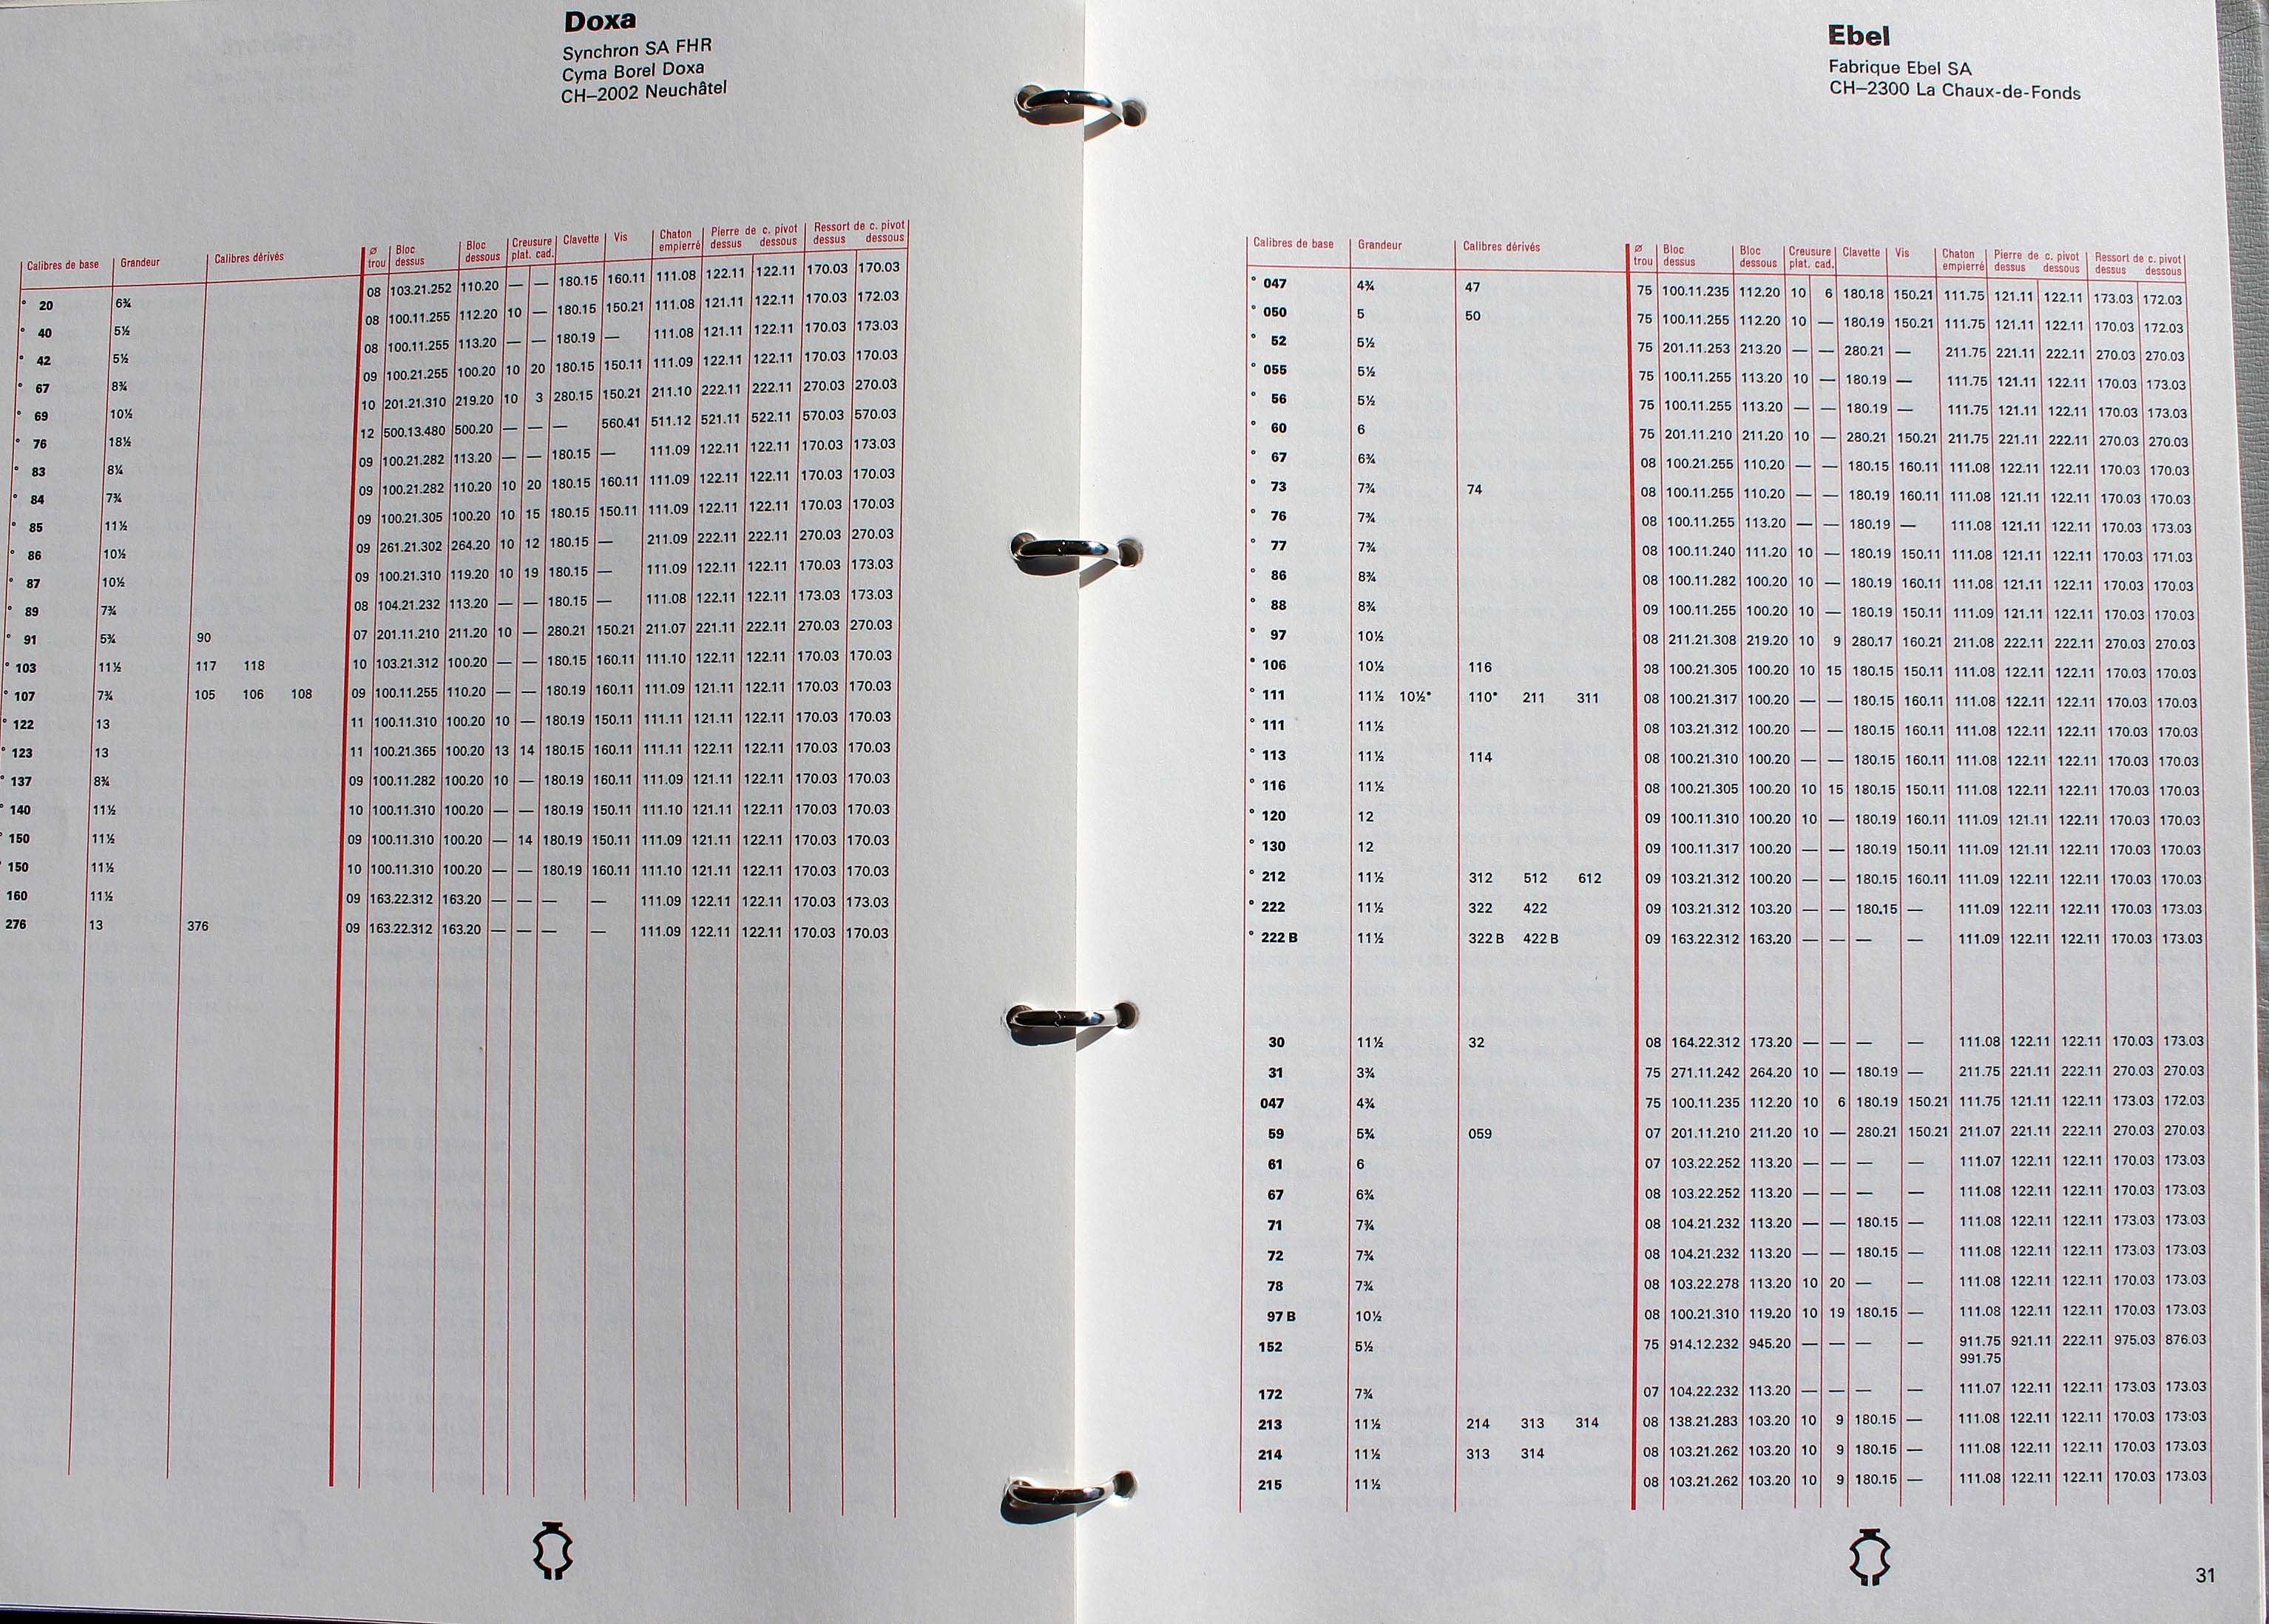 Doxa
Synchron SA FHR
Cyma Borel Doxa
CH–2002 Neuchâtel
Calibres de base Grandeur Calibres dérivés ø trou Bloc dessus Bloc dessous Creusure plat. cad. Clavette Vis Chaton empierré Pierre de c. pivot dessus dessous Ressort de c. pivot dessus dessous
° 20 6¾ 08 103.21.252 110.20 — — 180.15 160.11 111.08 122.11 122.11 170.03 170.03
° 40 5½ 08 100.11.255 112.20 10 — 180.15 150.21 111.08 121.11 122.11 170.03 172.03
° 42 5½ 08 100.11.255 113.20 — — 180.19 — 111.08 121.11 122.11 170.03 173.03
° 67 8¾ 09 100.21.255 100.20 10 20 180.15 150.11 111.09 122.11 122.11 170.03 170.03
° 69 10½ 10 201.21.310 219.20 10 3 280.15 150.21 211.10 222.11 222.11 270.03 270.03
° 76 18½ 12 500.13.480 500.20 — — — 560.41 511.12 521.11 522.11 570.03 570.03
° 83 8¼ 09 100.21.282 113.20 — — 180.15 — 111.09 122.11 122.11 170.03 173.03
° 84 7¾ 09 100.21.282 110.20 10 20 180.15 160.11 111.09 122.11 122.11 170.03 170.03
° 85 11½ 09 100.21.305 100.20 10 15 180.15 150.11 111.09 122.11 122.11 170.03 170.03
° 86 10½ 09 261.21.302 264.20 10 12 180.15 — 211.09 222.11 222.11 270.03 270.03
° 87 10½ 09 100.21.310 119.20 10 19 180.15 — 111.09 122.11 122.11 170.03 173.03
° 89 7¾ 08 104.21.232 113.20 — — 180.15 — 111.08 122.11 122.11 173.03 173.03
° 91 5¾ 90 07 201.11.210 211.20 10 — 280.21 150.21 211.07 221.11 222.11 270.03 270.03
° 103 11½ 117 118 10 103.21.312 100.20 — — 180.15 160.11 111.10 122.11 122.11 170.03 170.03
° 107 7¾ 105 106 108 09 100.11.255 110.20 — — 180.19 160.11 111.09 121.11 122.11 170.03 170.03
° 122 13 11 100.11.310 100.20 10 — 180.19 150.11 111.11 121.11 122.11 170.03 170.03
° 123 13 11 100.21.365 100.20 13 14 180.15 160.11 111.11 122.11 122.11 170.03 170.03
° 137 8¾ 09 100.11.282 100.20 10 — 180.19 160.11 111.09 121.11 122.11 170.03 170.03
° 140 11½ 10 100.11.310 100.20 — — 180.19 150.11 111.10 121.11 122.11 170.03 170.03
° 150 11½ 09 100.11.310 100.20 — 14 180.19 150.11 111.09 121.11 122.11 170.03 170.03
° 150 11½ 10 100.11.310 100.20 — — 180.19 160.11 111.10 121.11 122.11 170.03 170.03
160 11½ 09 163.22.312 163.20 — — — — 111.09 122.11 122.11 170.03 173.03
276 13 376 09 163.22.312 163.20 — — — — 111.09 122.11 122.11 170.03 170.03
Ebel
Fabrique Ebel SA
CH–2300 La Chaux-de-Fonds
Calibres de base Grandeur Calibres dérivés ø trou Bloc dessus Bloc dessous Creusure plat. cad. Clavette Vis Chaton empierré Pierre de c. pivot dessus dessous Ressort de c. pivot dessus dessous
° 047 4¾ 47 75 100.11.235 112.20 10 6 180.18 150.21 111.75 121.11 122.11 173.03 172.03
° 050 5 50 75 100.11.255 112.20 10 — 180.19 150.21 111.75 121.11 122.11 170.03 172.03
° 52 5½ 75 201.11.253 213.20 — — 280.21 — 211.75 221.11 222.11 270.03 270.03
° 055 5½ 75 100.11.255 113.20 10 — 180.19 — 111.75 121.11 122.11 170.03 173.03
° 56 5½ 75 100.11.255 113.20 — — 180.19 — 111.75 121.11 122.11 170.03 173.03
° 60 6 75 201.11.210 211.20 10 — 280.21 150.21 211.75 221.11 222.11 270.03 270.03
° 67 6¾ 08 100.21.255 110.20 — — 180.15 160.11 111.08 122.11 122.11 170.03 170.03
° 73 7¾ 74 08 100.11.255 110.20 — — 180.19 160.11 111.08 121.11 122.11 170.03 170.03
° 76 7¾ 08 100.11.255 113.20 — — 180.19 — 111.08 121.11 122.11 170.03 173.03
° 77 7¾ 08 100.11.240 111.20 10 — 180.19 150.11 111.08 121.11 122.11 170.03 171.03
° 86 8¾ 08 100.11.282 100.20 10 — 180.19 160.11 111.08 121.11 122.11 170.03 170.03
° 88 8¾ 09 100.11.255 100.20 10 — 180.19 150.11 111.09 121.11 122.11 170.03 170.03
° 97 10½ 08 211.21.308 219.20 10 9 280.17 160.21 211.08 222.11 222.11 270.03 270.03
° 106 10½ 116 08 100.21.305 100.20 10 15 180.15 150.11 111.08 122.11 122.11 170.03 170.03
° 111 11½ 10½* 110* 211 311 08 100.21.317 100.20 — — 180.15 160.11 111.08 122.11 122.11 170.03 170.03
° 111 11½ 08 103.21.312 100.20 — — 180.15 160.11 111.08 122.11 122.11 170.03 170.03
° 113 11½ 114 08 100.21.310 100.20 — — 180.15 160.11 111.08 122.11 122.11 170.03 170.03
° 116 11½ 08 100.21.305 100.20 10 15 180.15 150.11 111.08 122.11 122.11 170.03 170.03
° 120 12 09 100.11.310 100.20 10 — 180.19 160.11 111.09 121.11 122.11 170.03 170.03
° 130 12 09 100.11.317 100.20 — — 180.19 150.11 111.09 121.11 122.11 170.03 170.03
° 212 11½ 312 512 612 09 103.21.312 100.20 — — 180.15 160.11 111.09 122.11 122.11 170.03 170.03
° 222 11½ 322 422 09 103.21.312 103.20 — — 180.15 — 111.09 122.11 122.11 170.03 173.03
° 222 B 11½ 322 B 422 B 09 163.22.312 163.20 — — — — 111.09 122.11 122.11 170.03 173.03
30 11½ 32 08 164.22.312 173.20 — — — — 111.08 122.11 122.11 170.03 173.03
31 3¾ 75 271.11.242 264.20 10 — 180.19 — 211.75 221.11 222.11 270.03 270.03
047 4¾ 75 100.11.235 112.20 10 6 180.19 150.21 111.75 121.11 122.11 173.03 172.03
59 5¾ 059 07 201.11.210 211.20 10 — 280.21 150.21 211.07 221.11 222.11 270.03 270.03
61 6 07 103.22.252 113.20 — — — — 111.07 122.11 122.11 170.03 173.03
67 6¾ 08 103.22.252 113.20 — — — — 111.08 122.11 122.11 170.03 173.03
71 7¾ 08 104.21.232 113.20 — — 180.15 — 111.08 122.11 122.11 173.03 173.03
72 7¾ 08 104.21.232 113.20 — — 180.15 — 111.08 122.11 122.11 173.03 173.03
78 7¾ 08 103.22.278 113.20 10 20 — — 111.08 122.11 122.11 170.03 173.03
97 B 10½ 08 100.21.310 119.20 10 19 180.15 — 111.08 122.11 122.11 170.03 173.03
152 5½ 75 914.12.232 945.20 — — — — 911.75 921.11 222.11 975.03 876.03
991.75
172 7¾ 07 104.22.232 113.20 — — — — 111.07 122.11 122.11 173.03 173.03
213 11½ 214 313 314 08 138.21.283 103.20 10 9 180.15 — 111.08 122.11 122.11 170.03 173:03
214 11½ 313 314 08 103.21.262 103.20 10 9 180.15 — 111.08 122.11 122.11 170.03 173.03
215 11½ 08 103.21.262 103.20 10 9 180.15 — 111.08 122.11 122.11 170.03 173.03
31